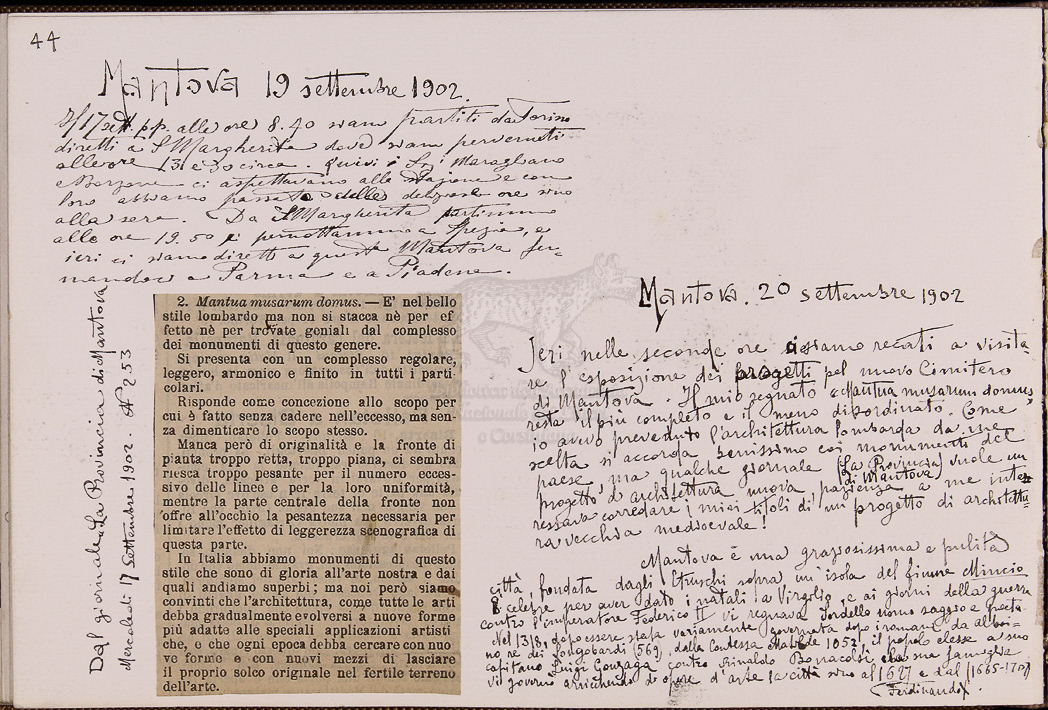 44
Mantova 19 settembre 1902.
Il 17 sett. p.p. alle ore 8.40 siam partiti da Torino
diretti a S Margherita dove siam pervenuti
alle ore 13 e 30 circa. Quivi i Sigi Maragliano
e ci aspettavano alla stazione e con
loro abbiamo passato delle deliziose ore sino
alla sera. Da S. Margherita partimmo
alle ore 19.50 e pernottammo a Spezia, e
ieri ci siamo diretti a questa Mantova fer-
mandoci a Parma e a Piadena.
Dal giornale La Provincia di Mantova
Mercoledì 17 Settembre 1902. N 253
2. Mantua musarum domus. — E' nel bello
stile lombardo ma non si stacca nè per ef
fetto nè per trovate geniali dal complesso
dei monumenti di questo genere.
Si presenta con un complesso regolare,
leggero, armonico e finito in tutti i parti
colari.
Risponde come concezione allo scopo per
cui è fatto senza cadere nell'eccesso, ma sen-
za dimenticare lo scopo stesso.
Manca però di originalità e la fronte di
pianta troppo retta, troppo piana, ci sembra
riesca troppo pesante per il numero ecces-
sivo delle linee e per la loro uniformità,
mentre la parte centrale della fronte non
offre all'occhio la pesantezza necessaria per
limitare l'effetto di leggerezza scenografica di
questa parte.
In Italia abbiamo monumenti di questo
stile che sono di gloria all'arte nostra e dai
quali andiamo superbi; ma noi però siamo
convinti che l'architettura, come tutte le arti
debba gradualmente evolversi a nuove forme
più adatte alle speciali applicazioni artisti
che, e che ogni epoca debba cercare con nuo
ve forme e con nuovi mezzi di lasciare
il proprio solco originale nel fertile terreno
dell'arte.
Mantova. 20 settembre 1902
Jeri nelle seconde ore ci siamo recati a visita-
re l'esposizione dei progetti pel nuovo Cimitero
di Mantova. Il mio segnato "Mantua musarum domus"
resta il più completo e il meno disordinato. Come
io avevo preveduto l'architettura lombarda da me
scelta si accorda benissimo coi monumenti del
paese, ma qualche giornale (La Provincia di Mantova) vuole un
progetto d'architettura nuova, pazienza a me inte-
ressava corredare i miei titoli di un progetto di architettu-
ra vecchia medioevale!
Mantova è una graziosissima e pulita
città, fondata dagli Etruschi sopra un'isola del fiume Mincio
È celebre per aver dato i natali a Virgilio, e ai giorni della guerra
contro l'imperatore Federico II vi regnava Sordello uomo saggio e poeta.
Nel 1318, dopo essere stata variamente governata dopo i romani da Alboi-
no re dei Longobardi (569), dalla Contessa Matilde 1052, il popolo elesse a suo
capitano Luigi Gonzaga contro Rinaldo Bonacolsi la sua famiglia
vi governò arricchendo di opere d'arte la città sino al 1627 e dal (1665-1707
Ferdinando).